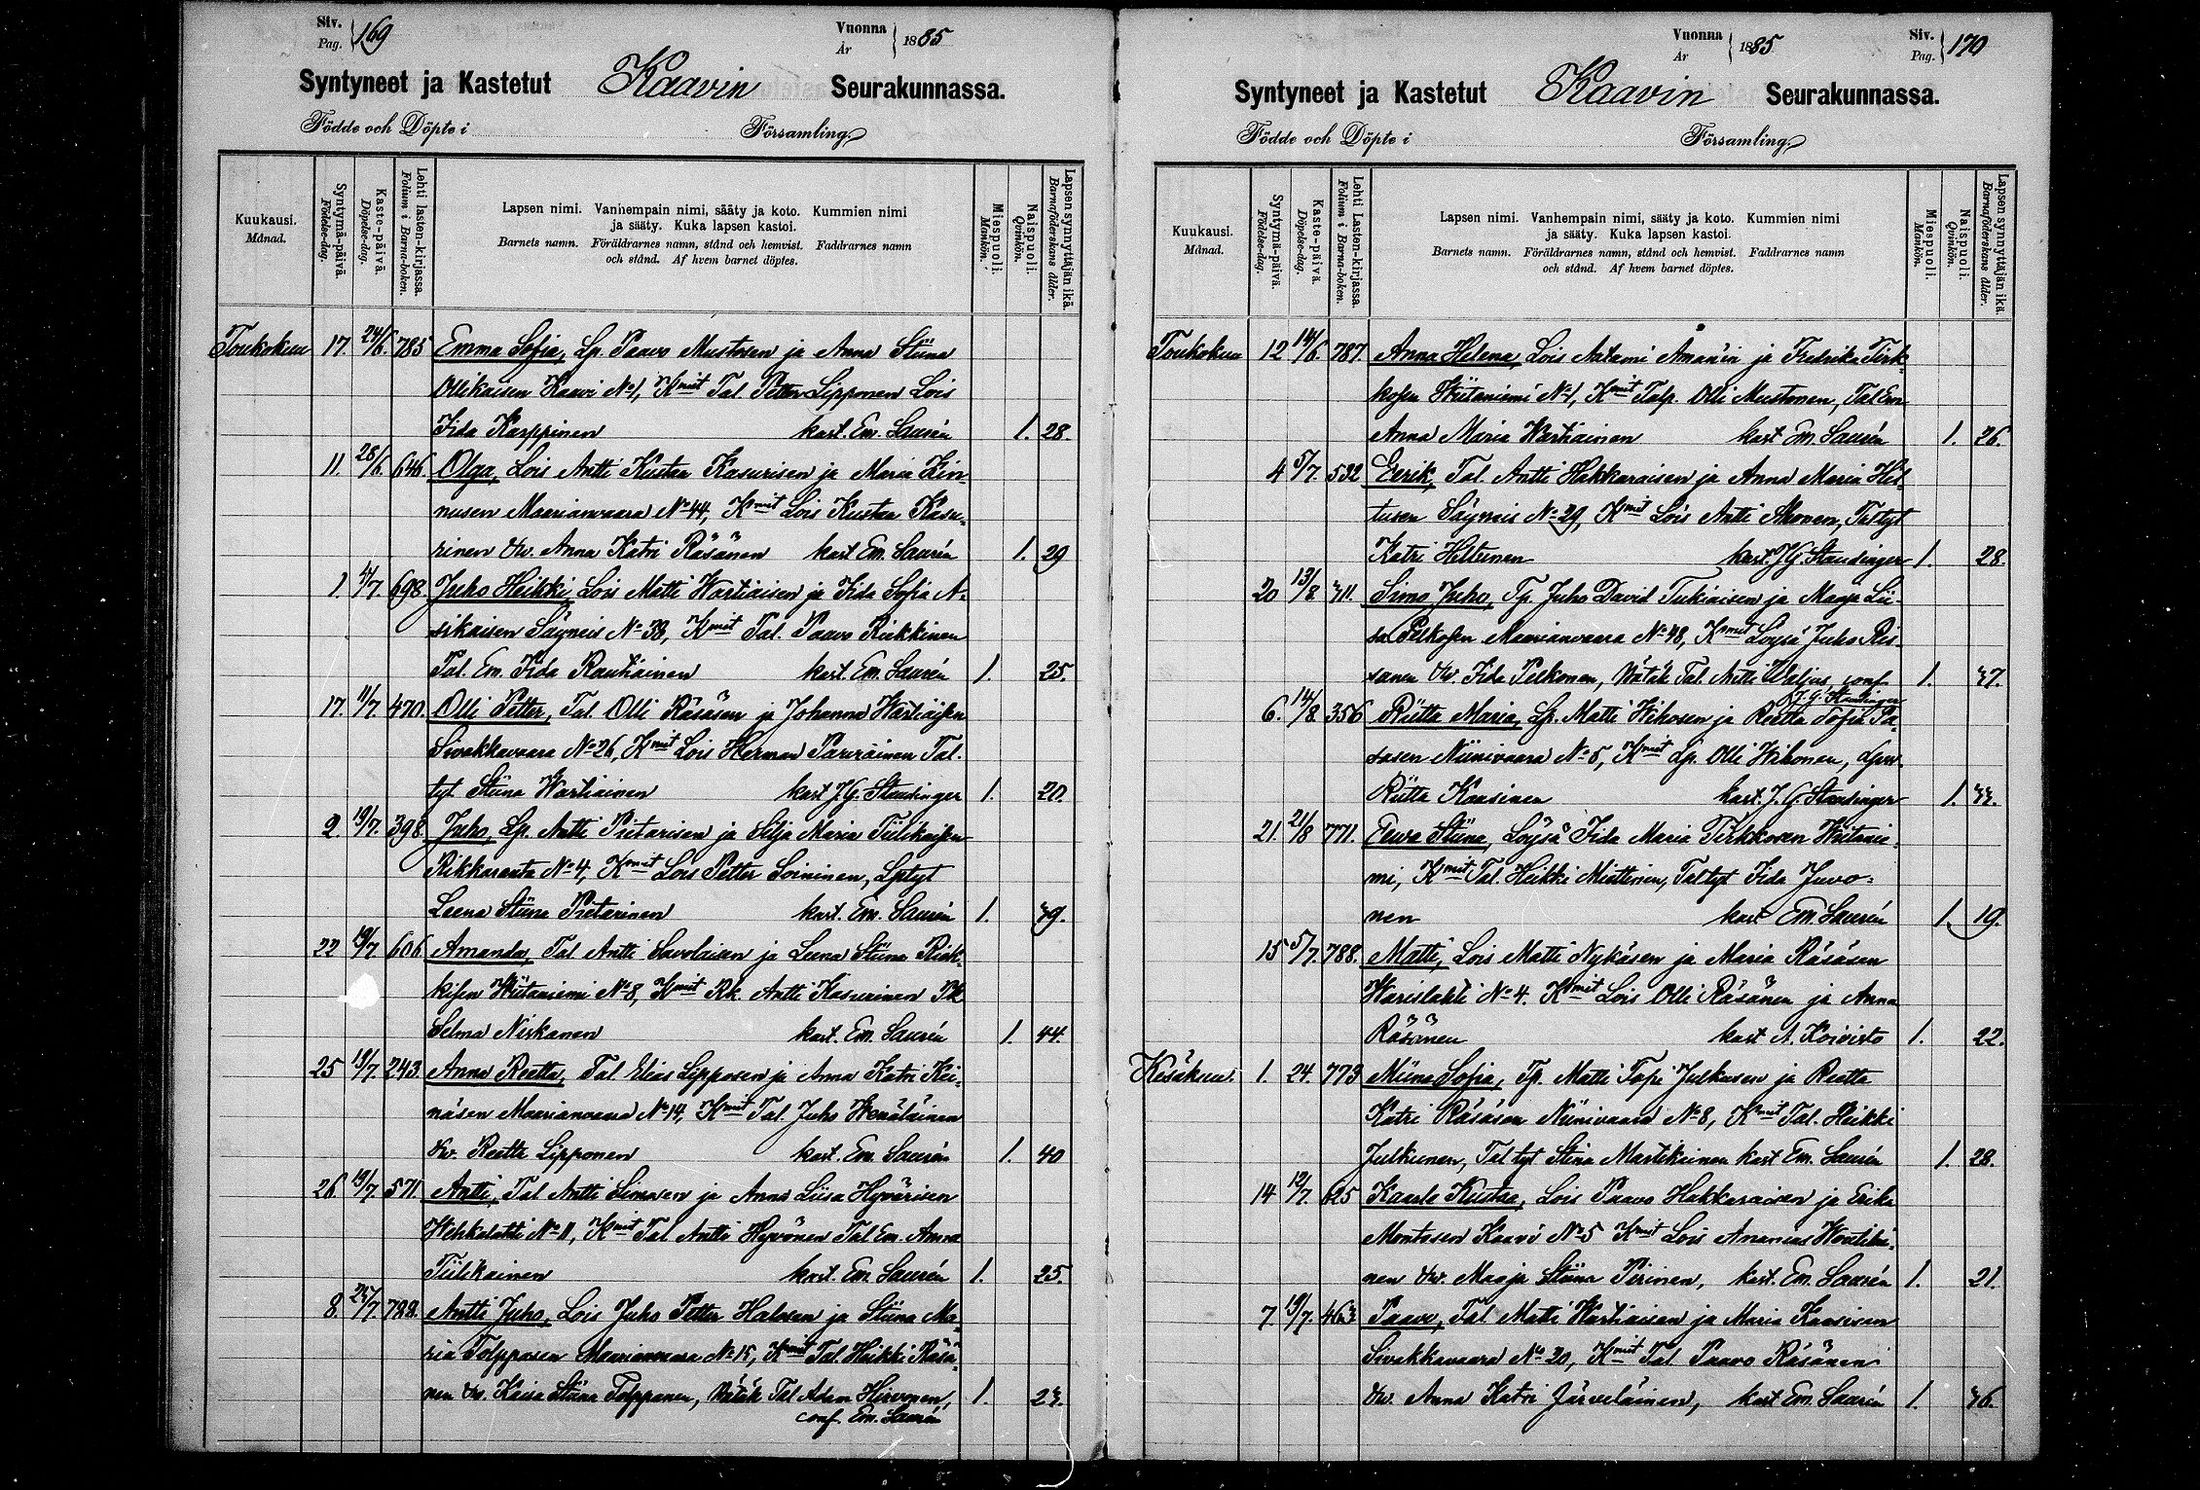 Siv.
Pag. 169
Vuonna
År 1885
Syntyneet ja Kastetut Kaavin Seurakunnassa.
Födde och Döpte i Församling
Kuukausi.
Månad.
Syntymä-päivä.
Födelse-dag.
Kaste-päivä.
Döpelse-dag.
Lehti lasten-kirjassa.
Folium i Barna-boken.
Lapsen nimi. Vanhempain nimi, sääty ja koto. Kummien nimi
ja sääty. Kuka lapsen kastoi.
Barnets namn. Föräldrarnes namn, stånd och hemvist. Faddrarnes namn
och stånd. Af hvem barnet döptes.
Miespuoli.
Mankön.
Naispuoli.
Qvinkön.
Lapsen synnyttäjän ikä.
Barnaföderskans ålder.
Toukokuu 17. 24/6. 785 Emma Sofia, Lp. Paavo Mustosen ja Anna Stiina
Ollikaisen Kaavi No 1, Kmit Tal. Petter Lipponen Lois
Iida Karppinen kast. Em. Saurén 1. 28.
11. 28/6. 646. Olga, Lois Antti Kustaa Kasurisen ja Maria Kin-
nusen Maarianvaara No 44, Kmit Lois Kustaa Kasu-
rinen &w. Anna Katri Räsänen kast. Em. Saurén 1. 29
1. 4/7. 698. Juho Heikki, Lois Matti Wartiaisen ja Iida Sofia A-
sikaisen Säyneis No 38, Kmit Tal. Paavo Riekkinen
Tal. Em. Iida Rautiainen kast. Em. Saurén 1. 25.
17. 11/7. 470. Olli Petter, Tal. Olli Räsäsen ja Johanna Wartiaisen
Siwakkavaara No 26, Kmit Lois Herman Parviainen Tal.
tyt. Stiina Wartiainen kast J. G. Standinger 1. 20.
2. 19/7. 398. Juho, Lp. Antti Pietarisen ja Silja Maria Tiilikaisen
Rikkaranta No 4, Kmit Lois Petter Soininen, Lptyt
Leena Stiina Pietarinen kast. Em. Saurén 1. 39.
22 19/7 606 Amanda, Tal Antti Savolaisen ja Leena Stiina Riek-
kisen Wiitaniemi No 8, Kmit Rk. Antti Kasurinen Pk
Selma Niskanen kast. Em. Saurén 1. 44.
25 19/7. 243. Anna Reetta, Tal Elias Lipposen ja Anna Katri Kei-
näsen Maarianvaara No 14, Kmit Tal. Juho Wenäläinen
&w. Reetta Lipponen kast. Em. Saurén 1. 40
26 19/7. 571. Antti, Tal Antti Simosen ja Anna Liisa Hyvärisen
Wehkalahti No 11, Kmit Tal Antti Hyvönen Tal Em. Anna
Tiilikainen kast. Em. Saurén 1. 25.
8. 25/7. 788. Antti Juho, Lois Juho Petter Halosen ja Stiina Ma-
ria Tolppasen Maarianvaara No 15, Kmit Tal. Heikki Räsä-
nen &w. Kaisa Stiina Tolppanen, Hätäk Tal Adam Hirvonen, 1. 23.
conf. Em. Saurén
Vuonna
År 1885
Siv.
Pag. 170
Syntyneet ja Kastetut Kaavin Seurakunnassa.
Födde och Döpte i Församling
Kuukausi.
Månad.
Syntymä-päivä.
Födelse-dag.
Kaste-päivä.
Döpelse-dag.
Lehti Lasten-kirjassa.
Folium i Barna-boken.
Lapsen nimi. Vanhempain nimi, sääty ja koto. Kummien nimi
ja sääty. Kuka lapsen kastoi.
Barnets namn. Föräldrarnes namn, stånd och hemvist. Faddrarnes namn
och stånd. Af hvem barnet döptes.
Miespuoli.
Mankön.
Naispuoli.
Qvinkön.
Lapsen synnyttäjän ikä.
Barnaföderskans ålder.
Toukokuu 12 14/6 787 Anna Helena, Lois Aatami ja Fredrika Tirk-
kosen Wiitaniemi No 1, Kmit Talp. Olli Mustonen, Tal Em
Anna Maria Wartiainen kast Em. Saurén 1. 26.
4 5/7. 532 Eerik, Tal. Antti Hakkaraisen ja Anna Maria Hil-
tusen Säyneis No 29, Kmit Lois Antti Ahonen, Taltyt
Katri Hiltunen kast. J G. Standinger 1. 28.
20 13/8 711. Simo Juho, Tp. Juho David Tukiaisen ja Maaja Lii-
sa Pelkosen Maarianvaara No 48, Kmit Loysä Juho Ris-
sanen &w. Iida Pelkonen, Hätäk Tal. Antti Waljus conf. 1. 37.
J. G. Standinger
6. 14/8. 356 Riitta Maria, Lp. Matti Wihosen ja Reetta Sofia Pa-
sasen Niinivaara No 5, Kmit Lp. Olli Wihonen, Lpw.
Riitta Kaasinen kast. J. G. Standinger 1. 33.
21. 21/8 771. Eewa Stiina, Löysä Iida Maria Tirkkosen Wiitanie-
mi, Kmit Tal. Heikki Miettinen, Taltyt Iida Juvo-
nen kast Em. Saurén 1. 19.
15 5/7. 788. Matti, Lois Matti Nykäsen ja Maria Räsäsen
Warislahti No 4. Kmit Lois Olli Räsänen ja Anna
Räsänen kast A. Koivisto 1. 22.
Kesäkuu. 1. 24. 773 Miina Sofia, Tp. Matti Tapi Julkusen ja Reetta
Katri Räsäsen Niinivaara No 8, Kmit Tal. Heikki
Julkunen, Tal tyt Stina Martikainen kast Em. Saurén 1. 28.
14 12/7 625 Kaarlo Kustaa, Lois Paavo Hakkaraisen ja Erika
Montosen Kaavi No 5 Kmit Lois Ananias Woutilai-
nen &w. Maaja Stiina Pirinen, kast. Em. Saurén 1. 21.
7 19/7. 463 Paavo, Tal Matti Wartiaisen ja Maria Kaasisen
Siwakkavaara No 20, Kmit Tal Paavo Räsänen
&w. Anna Katri Järveläinen, kast Em. Saurén 1. 36.